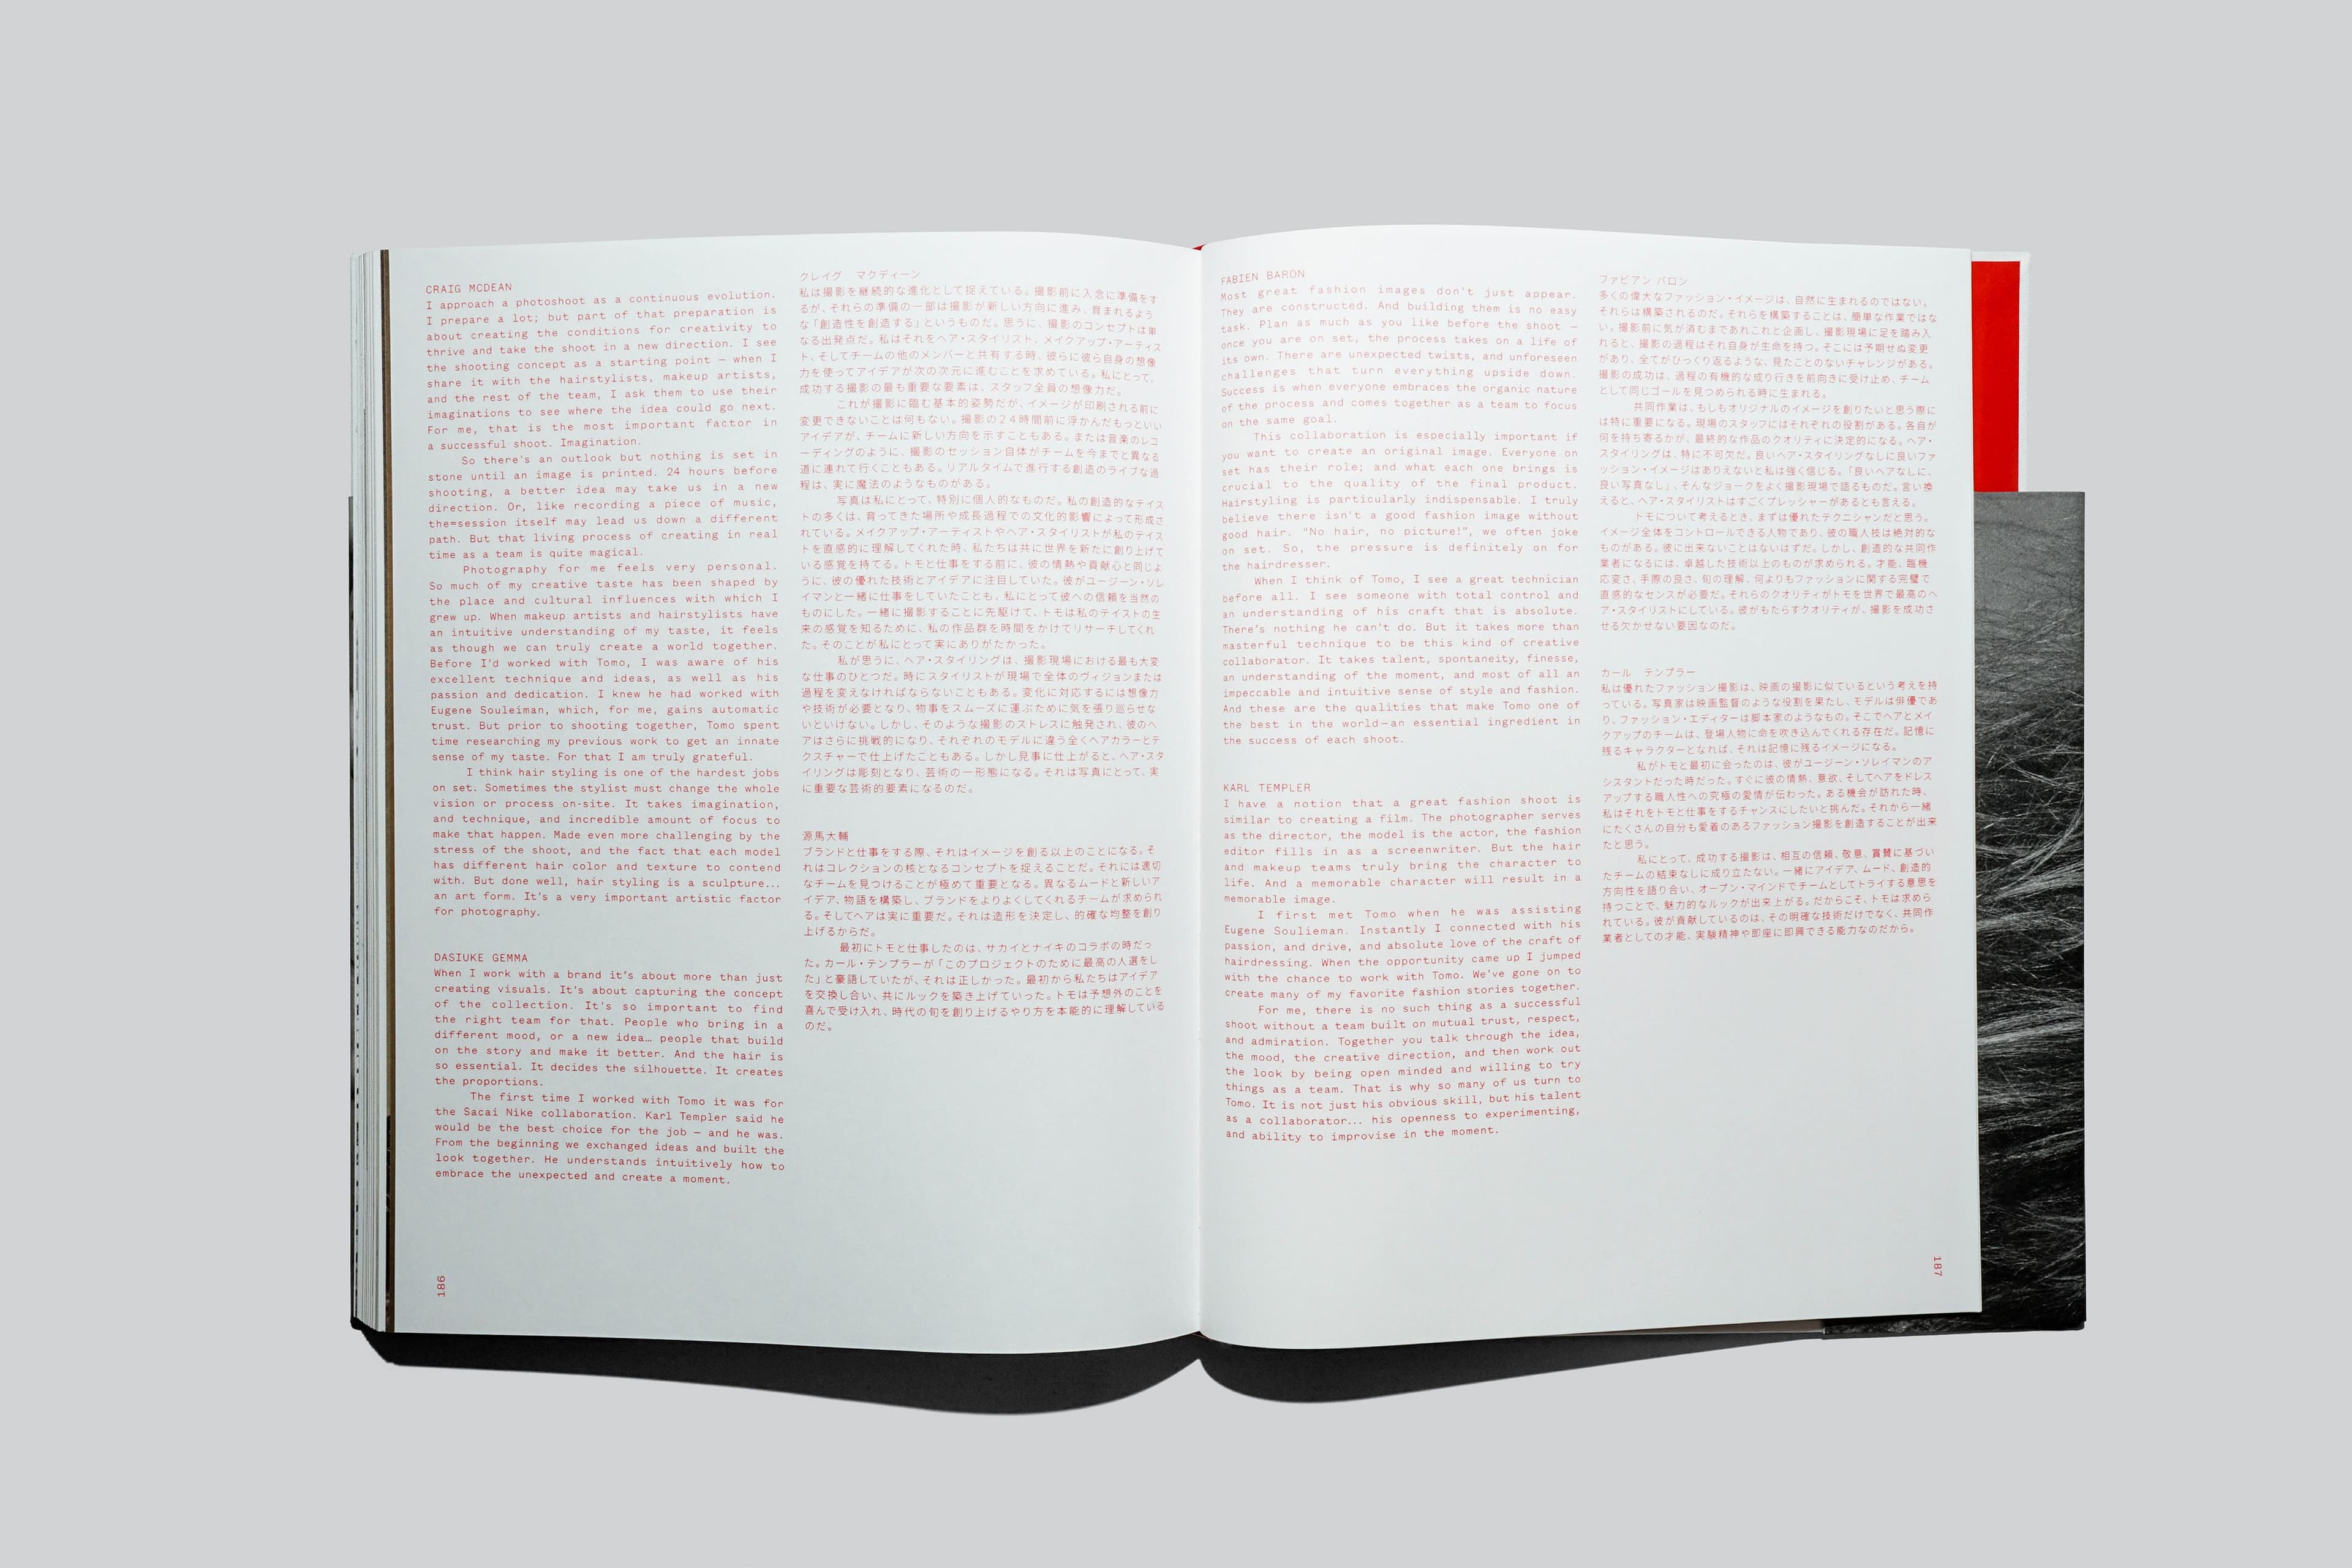 CRAIG MCDEAN
I approach a photoshoot as a continuous evolution.
I prepare a lot; but part of that preparation is
about creating the conditions for creativity to
thrive and take the shoot in a new direction. I see
the shooting concept as a starting point — when I
share it with the hairstylists, makeup artists,
and the rest of the team, I ask them to use their
imaginations to see where the idea could go next.
For me, that is the most important factor in
a successful shoot. Imagination.
So there's an outlook but nothing is set in
stone until an image is printed. 24 hours before
shooting, a better idea may take us in a new
direction. Or, like recording a piece of music,
the=session itself may lead us down a different
path. But that living process of creating in real
time as a team is quite magical.
Photography for me feels very personal.
So much of my creative taste has been shaped by
the place and cultural influences with which I
grew up. When makeup artists and hairstylists have
an intuitive understanding of my taste, it feels
as though we can truly create a world together.
Before I'd worked with Tomo, I was aware of his
excellent technique and ideas, as well as his
passion and dedication. I knew he had worked with
Eugene Souleiman, which, for me, gains automatic
trust. But prior to shooting together, Tomo spent
time researching my previous work to get an innate
sense of my taste. For that I am truly grateful.
I think hair styling is one of the hardest jobs
on set. Sometimes the stylist must change the whole
vision or process on-site. It takes imagination,
and technique, and incredible amount of focus to
make that happen. Made even more challenging by the
stress of the shoot, and the fact that each model
has different hair color and texture to contend
with. But done well, hair styling is a sculpture...
an art form. It's a very important artistic factor
for photography.
DASIUKE GEMMA
When I work with a brand it's about more than just
creating visuals. It's about capturing the concept
of the collection. It's so important to find
the right team for that. People who bring in a
different mood, or a new idea… people that build
on the story and make it better. And the hair is
so essential. It decides the silhouette. It creates
the proportions.
The first time I worked with Tomo it was for
the Sacai Nike collaboration. Karl Templer said he
would be the best choice for the job — and he was.
From the beginning we exchanged ideas and built the
look together. He understands intuitively how to
embrace the unexpected and create a moment.
186
クレイグ　マクディーン
私は撮影を継続的な進化として捉えている。撮影前に入念に準備をす
るが、それらの準備の一部は撮影が新しい方向に進み、育まれるよう
な「創造性を創造する」というものだ。思うに、撮影のコンセプトは単
なる出発点だ。私はそれをヘア・スタイリスト、メイクアップ・アーティス
ト、そしてチームの他のメンバーと共有する時、彼らに彼ら自身の想像
力を使ってアイデアが次の次元に進むことを求めている。私にとって、
成功する撮影の最も重要な要素は、スタッフ全員の想像力だ。
これが撮影に臨む基本的姿勢だが、イメージが印刷される前に
変更できないことは何もない。撮影の24時間前に浮かんだもっといい
アイデアが、チームに新しい方向を示すこともある。または音楽のレコ
ーディングのように、撮影のセッション自体がチームを今までと異なる
道に連れて行くこともある。リアルタイムで進行する創造のライブな過
程は、実に魔法のようなものがある。
写真は私にとって、特別に個人的なものだ。私の創造的なテイス
トの多くは、育ってきた場所や成長過程での文化的影響によって形成さ
れている。メイクアップ・アーティストやヘア・スタイリストが私のテイス
トを直感的に理解してくれた時、私たちは共に世界を新たに創り上げて
いる感覚を持てる。トモと仕事をする前に、彼の情熱や貢献心と同じよ
うに、彼の優れた技術とアイデアに注目していた。彼がユージーン・ソレ
イマンと一緒に仕事をしていたことも、私にとって彼への信頼を当然の
ものにした。一緒に撮影することに先駆けて、トモは私のテイストの生
来の感覚を知るために、私の作品群を時間をかけてリサーチしてくれ
た。そのことが私にとって実にありがたかった。
私が思うに、ヘア・スタイリングは、撮影現場における最も大変
な仕事のひとつだ。時にスタイリストが現場で全体のヴィジョンまたは
過程を変えなければならないこともある。変化に対応するには想像力
や技術が必要となり、物事をスムーズに運ぶために気を張り巡らせな
いといけない。しかし、そのような撮影のストレスに触発され、彼のヘ
アはさらに挑戦的になり、それぞれのモデルに違う全くヘアカラーとテ
クスチャーで仕上げたこともある。しかし見事に仕上がると、ヘア・スタ
イリングは彫刻となり、芸術の一形態になる。それは写真にとって、実
に重要な芸術的要素になるのだ。
源馬大輔
ブランドと仕事をする際、それはイメージを創る以上のことになる。そ
れはコレクションの核となるコンセプトを捉えることだ。それには適切
なチームを見つけることが極めて重要となる。異なるムードと新しいア
イデア、物語を構築し、ブランドをよりよくしてくれるチームが求められ
る。そしてヘアは実に重要だ。それは造形を決定し、的確な均整を創り
上げるからだ。
最初にトモと仕事したのは、サカイとナイキのコラボの時だっ
た。カール・テンプラーが「このプロジェクトのために最高の人選をし
た」と豪語していたが、それは正しかった。最初から私たちはアイデア
を交換し合い、共にルックを築き上げていった。トモは予想外のことを
喜んで受け入れ、時代の旬を創り上げるやり方を本能的に理解している
のだ。
FABIEN BARON
Most great fashion images don't just appear.
They are constructed. And building them is no easy
task. Plan as much as you like before the shoot —
once you are on set, the process takes on a life of
its own. There are unexpected twists, and unforeseen
challenges that turn everything upside down.
Success is when everyone embraces the organic nature
of the process and comes together as a team to focus
on the same goal.
This collaboration is especially important if
you want to create an original image. Everyone on
set has their role; and what each one brings is
crucial to the quality of the final product.
Hairstyling is particularly indispensable. I truly
believe there isn't a good fashion image without
good hair. "No hair, no picture!", we often joke
on set. So, the pressure is definitely on for
the hairdresser.
When I think of Tomo, I see a great technician
before all. I see someone with total control and
an understanding of his craft that is absolute.
There's nothing he can't do. But it takes more than
masterful technique to be this kind of creative
collaborator. It takes talent, spontaneity, finesse,
an understanding of the moment, and most of all an
impeccable and intuitive sense of style and fashion.
And these are the qualities that make Tomo one of
the best in the world—an essential ingredient in
the success of each shoot.
KARL TEMPLER
I have a notion that a great fashion shoot is
similar to creating a film. The photographer serves
as the director, the model is the actor, the fashion
editor fills in as a screenwriter. But the hair
and makeup teams truly bring the character to
life. And a memorable character will result in a
memorable image.
I first met Tomo when he was assisting
Eugene Soulieman. Instantly I connected with his
passion, and drive, and absolute love of the craft of
hairdressing. When the opportunity came up I jumped
with the chance to work with Tomo. We've gone on to
create many of my favorite fashion stories together.
For me, there is no such thing as a successful
shoot without a team built on mutual trust, respect,
and admiration. Together you talk through the idea,
the mood, the creative direction, and then work out
the look by being open minded and willing to try
things as a team. That is why so many of us turn to
Tomo. It is not just his obvious skill, but his talent
as a collaborator... his openness to experimenting,
and ability to improvise in the moment.
ファビアン バロン
多くの偉大なファッション・イメージは、自然に生まれるのではない。
それらは構築されるのだ。それらを構築することは、簡単な作業ではな
い。撮影前に気が済むまであれこれと企画し、撮影現場に足を踏み入
れると、撮影の過程はそれ自身が生命を持つ。そこには予期せぬ変更
があり、全てがひっくり返るような、見たことのないチャレンジがある。
撮影の成功は、過程の有機的な成り行きを前向きに受け止め、チーム
として同じゴールを見つめられる時に生まれる。
共同作業は、もしもオリジナルのイメージを創りたいと思う際に
は特に重要になる。現場のスタッフにはそれぞれの役割がある。各自が
何を持ち寄るかが、最終的な作品のクオリティに決定的になる。ヘア・
スタイリングは、特に不可欠だ。良いヘア・スタイリングなしに良いファ
ッション・イメージはありえないと私は強く信じる。「良いヘアなしに、
良い写真なし」、そんなジョークをよく撮影現場で語るものだ。言い換
えると、ヘア・スタイリストはすごくプレッシャーがあるとも言える。
トモについて考えるとき、まずは優れたテクニシャンだと思う。
イメージ全体をコントロールできる人物であり、彼の職人技は絶対的な
ものがある。彼に出来ないことはないはずだ。しかし、創造的な共同作
業者になるには、卓越した技術以上のものが求められる。才能、臨機
応変さ、手際の良さ、旬の理解、何よりもファッションに関する完璧で
直感的なセンスが必要だ。それらのクオリティがトモを世界で最高のヘ
ア・スタイリストにしている。彼がもたらすクオリティが、撮影を成功さ
せる欠かせない要因なのだ。
カール　テンプラー
私は優れたファッション撮影は、映画の撮影に似ているという考えを持
っている。写真家は映画監督のような役割を果たし、モデルは俳優であ
り、ファッション・エディターは脚本家のようなもの。そこでヘアとメイ
クアップのチームは、登場人物に命を吹き込んでくれる存在だ。記憶に
残るキャラクターとなれば、それは記憶に残るイメージになる。
私がトモと最初に会ったのは、彼がユージーン・ソレイマンのア
シスタントだった時だった。すぐに彼の情熱、意欲、そしてヘアをドレス
アップする職人性への究極の愛情が伝わった。ある機会が訪れた時、
私はそれをトモと仕事をするチャンスにしたいと挑んだ。それから一緒
にたくさんの自分も愛着のあるファッション撮影を創造することが出来
たと思う。
私にとって、成功する撮影は、相互の信頼、敬意、賞賛に基づい
たチームの結束なしに成り立たない。一緒にアイデア、ムード、創造的
方向性を語り合い、オープン・マインドでチームとしてトライする意思を
持つことで、魅力的なルックが出来上がる。だからこそ、トモは求めら
れている。彼が貢献しているのは、その明確な技術だけでなく、共同作
業者としての才能、実験精神や即座に即興できる能力なのだから。
187